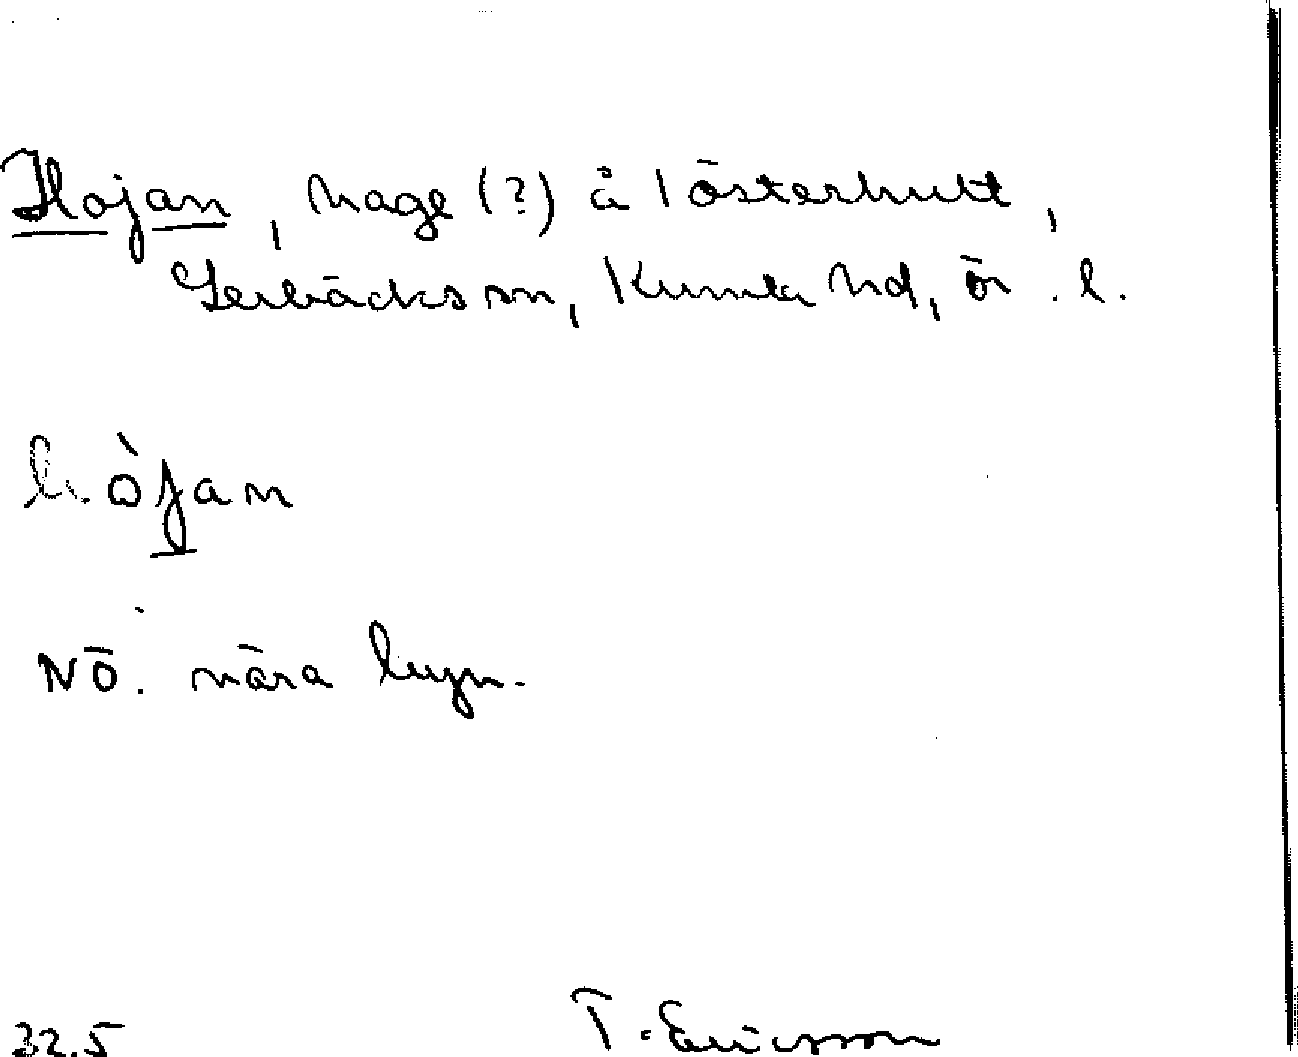 Hojan, hage (?) å 1 österhult,
Lerbäcks sn, Kumla hd, ör. l.
hòjan
NÖ. nära byn.
32.5 T. Ericsson